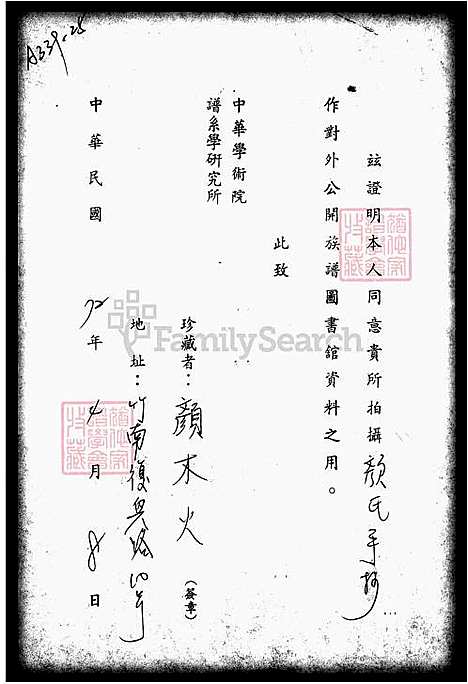 A339-28
玆證明本人同意貴所拍攝顏氏手抄
作對外公開族譜圖書館資料之用。
此致
中華學術院
譜系學研究所
珍藏者：顏木火（簽章）
地址：竹南復興路四号
中華民國72年4月8日
FamilySearch